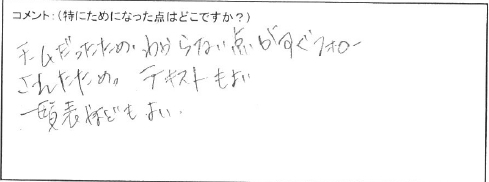 コメント:(特にためになった点はどこですか?)
チームだったため、わからない点がすぐフォロー
されたため。 テキストもよい
一覧表などもよい.